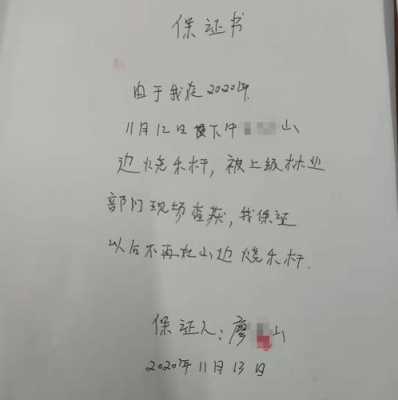 保证书
由于我在2020年
11月12日下午山
边烧禾杆，被上级林业
部门现场查获，我保证
以后不再在山边烧禾杆.
保证人：廖山
2020年11月13日